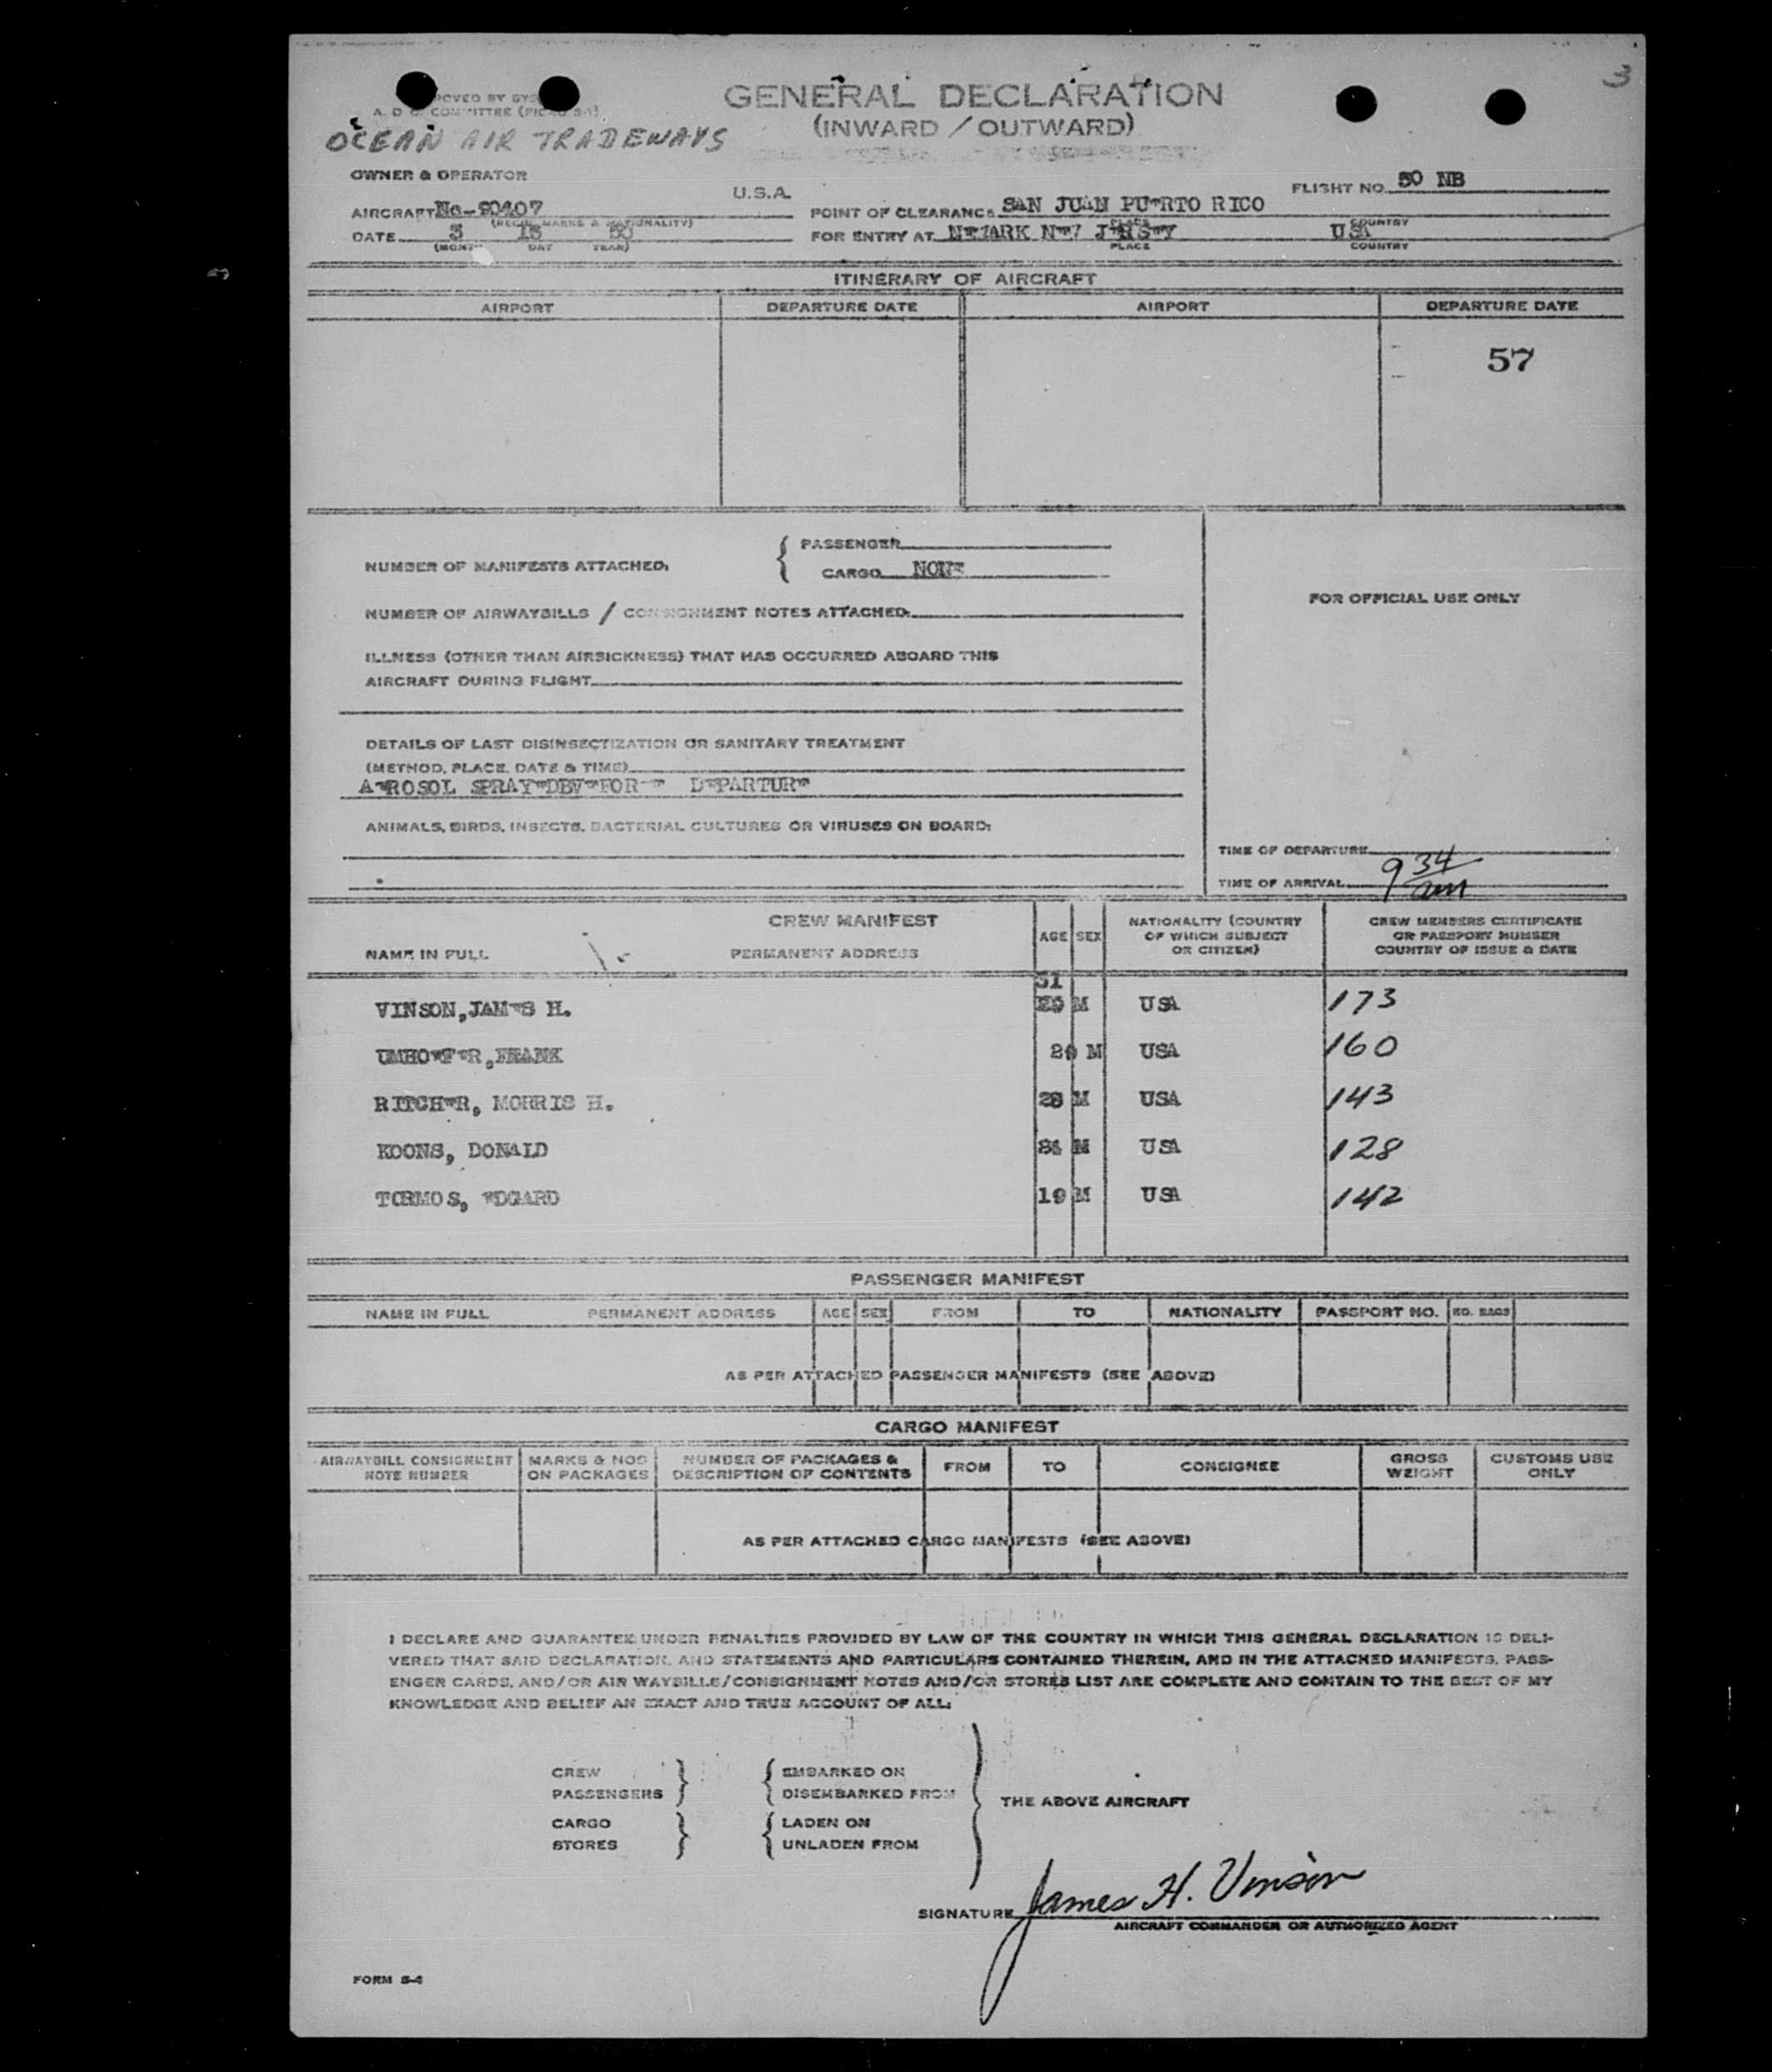 3
GENERAL DECLARATION
(INWARD / OUTWARD)
A. D. C. COMMITTEE
OCEAN AIR TRADEWAYS
OWNER & OPERATOR
U.S.A.
FLIGHT NO. 50 NB
AIRCRAFT Nc-90407
POINT OF CLEARANCE SAN JUAN PUERTO RICO
(REGIS. MARKS & NATIONALITY)
PLACE COUNTRY
DATE 3 50
FOR ENTRY AT NEWARK NEW JERSEY USA
(MONTH DAY YEAR)
PLACE COUNTRY
ITINERARY OF AIRCRAFT
AIRPORT DEPARTURE DATE AIRPORT DEPARTURE DATE
57
NUMBER OF MANIFESTS ATTACHED: { PASSENGER
CARGO NONE
FOR OFFICIAL USE ONLY
NUMBER OF AIRWAYBILLS / CONSIGNMENT NOTES ATTACHED:
ILLNESS (OTHER THAN AIRSICKNESS) THAT HAS OCCURRED ABOARD THIS
AIRCRAFT DURING FLIGHT
DETAILS OF LAST DISINSECTIZATION OR SANITARY TREATMENT
(METHOD, PLACE, DATE & TIME)
AEROSOL SPRAY DEPARTURE
ANIMALS, BIRDS, INSECTS, BACTERIAL CULTURES OR VIRUSES ON BOARD:
TIME OF DEPARTURE
TIME OF ARRIVAL 9 34 am
CREW MANIFEST
NAME IN FULL PERMANENT ADDRESS AGE SEX NATIONALITY (COUNTRY OF WHICH SUBJECT OR CITIZEN) CREW MEMBERS CERTIFICATE OR PASSPORT NUMBER COUNTRY OF ISSUE & DATE
31
VINSON, JAMES H. M USA 173
UMHOEFER, FRANK M USA 160
RITCHER, MORRIS H. 28 M USA 143
KOONS, DONALD M USA 128
TORMOS, EDGARD 19 M USA 142
PASSENGER MANIFEST
NAME IN FULL PERMANENT ADDRESS AGE SEX FROM TO NATIONALITY PASSPORT NO. NO. BAGS
AS PER ATTACHED PASSENGER MANIFESTS (SEE ABOVE)
CARGO MANIFEST
AIRWAYBILL CONSIGNMENT NOTE NUMBER MARKS & NOS ON PACKAGES NUMBER OF PACKAGES & DESCRIPTION OF CONTENTS FROM TO CONSIGNEE GROSS WEIGHT CUSTOMS USE ONLY
AS PER ATTACHED CARGO MANIFESTS (SEE ABOVE)
I DECLARE AND GUARANTEE UNDER PENALTIES PROVIDED BY LAW OF THE COUNTRY IN WHICH THIS GENERAL DECLARATION IS DELI-
VERED THAT SAID DECLARATION, AND STATEMENTS AND PARTICULARS CONTAINED THEREIN, AND IN THE ATTACHED MANIFESTS, PASS-
ENGER CARDS, AND/OR AIR WAYBILLS/CONSIGNMENT NOTES AND/OR STORES LIST ARE COMPLETE AND CONTAIN TO THE BEST OF MY
KNOWLEDGE AND BELIEF AN EXACT AND TRUE ACCOUNT OF ALL:
CREW EMBARKED ON
PASSENGERS DISEMBARKED FROM
THE ABOVE AIRCRAFT
CARGO LADEN ON
STORES UNLADEN FROM
SIGNATURE James H. Vinson
AIRCRAFT COMMANDER OR AUTHORIZED AGENT
FORM